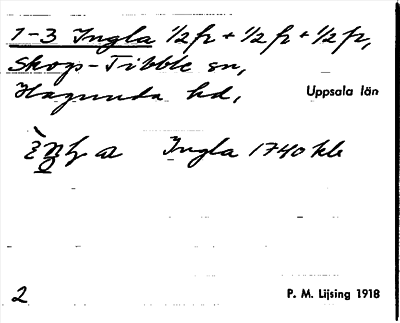 1-3 Ingla 1/2 fr + 1/2 fr + 1/2 fr,
Skogs-Tibble sn,
Hagunda hd, Uppsala län
Ingla 1740 kb
2 P. M. Lijsing 1918